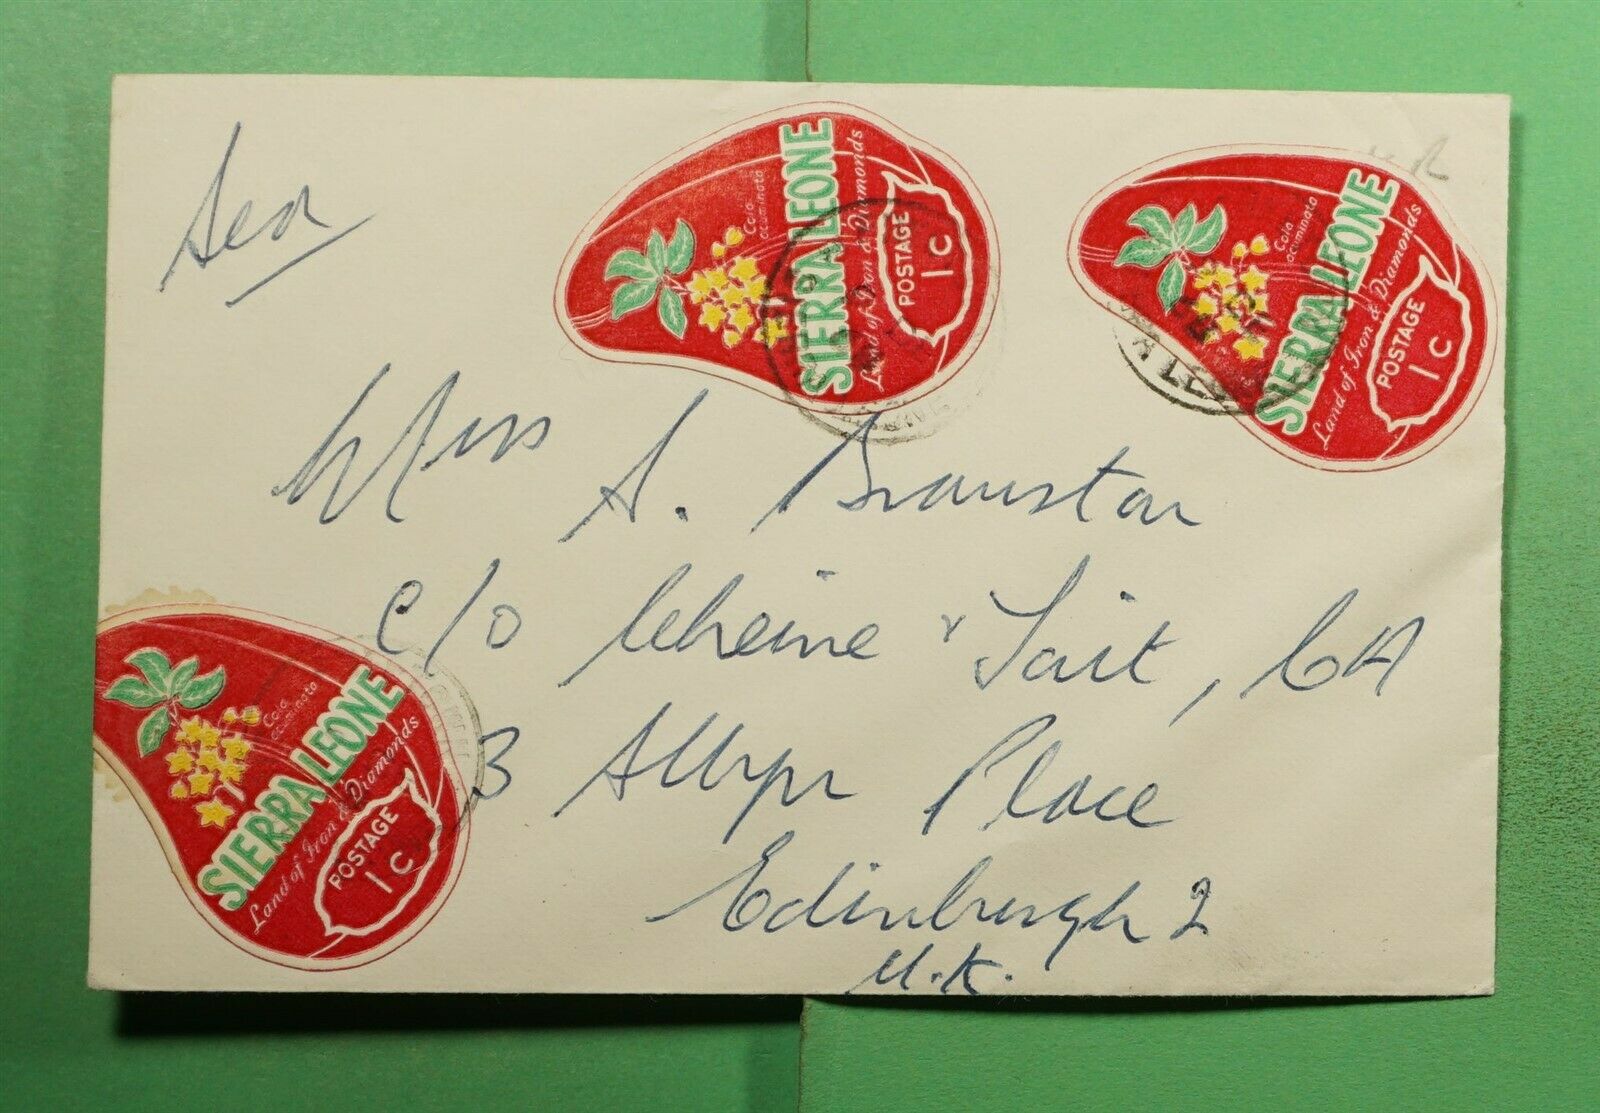 Sea
Cola
acuminata
SIERRA LEONE
Land of Iron & Diamonds
POSTAGE
1c
Cola
acuminata
SIERRA LEONE
Land of Iron & Diamonds
POSTAGE
1c
Miss A.
c/o & Tait, CA
3 Albyn Place
Edinburgh 2
U.K.
Cola
acuminata
SIERRA LEONE
Land of Iron & Diamonds
POSTAGE
1c